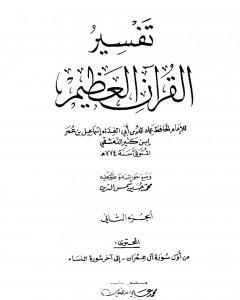 تفسير
القرآن العظيم
للإمام الحافظ عماد الدين أبي الفداء إسماعيل بن عمر
ابن كثير الدمشقي
المتوفى سنة ٧٧٤هـ
وضع حواشيه وعلق عليه
محمد حسين شمس الدين
الجزء الثاني
المحتوى:
من أول سورة آل عمران - إلى آخر سورة النساء
محمد علي بيضون